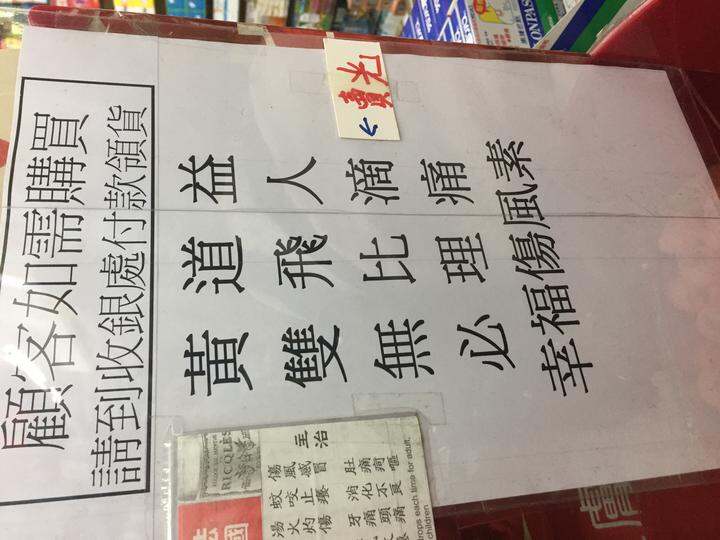 顧客如需購買
請到收銀處付款領貨
賣光
黃道益
雙飛人
無比滴
必理痛
幸福傷風素
RICQLES
主治
傷風感冒
蚊咬止癢
湯火灼傷
消化不良
牙痛頭痛
國
each time for adult.
children
膚